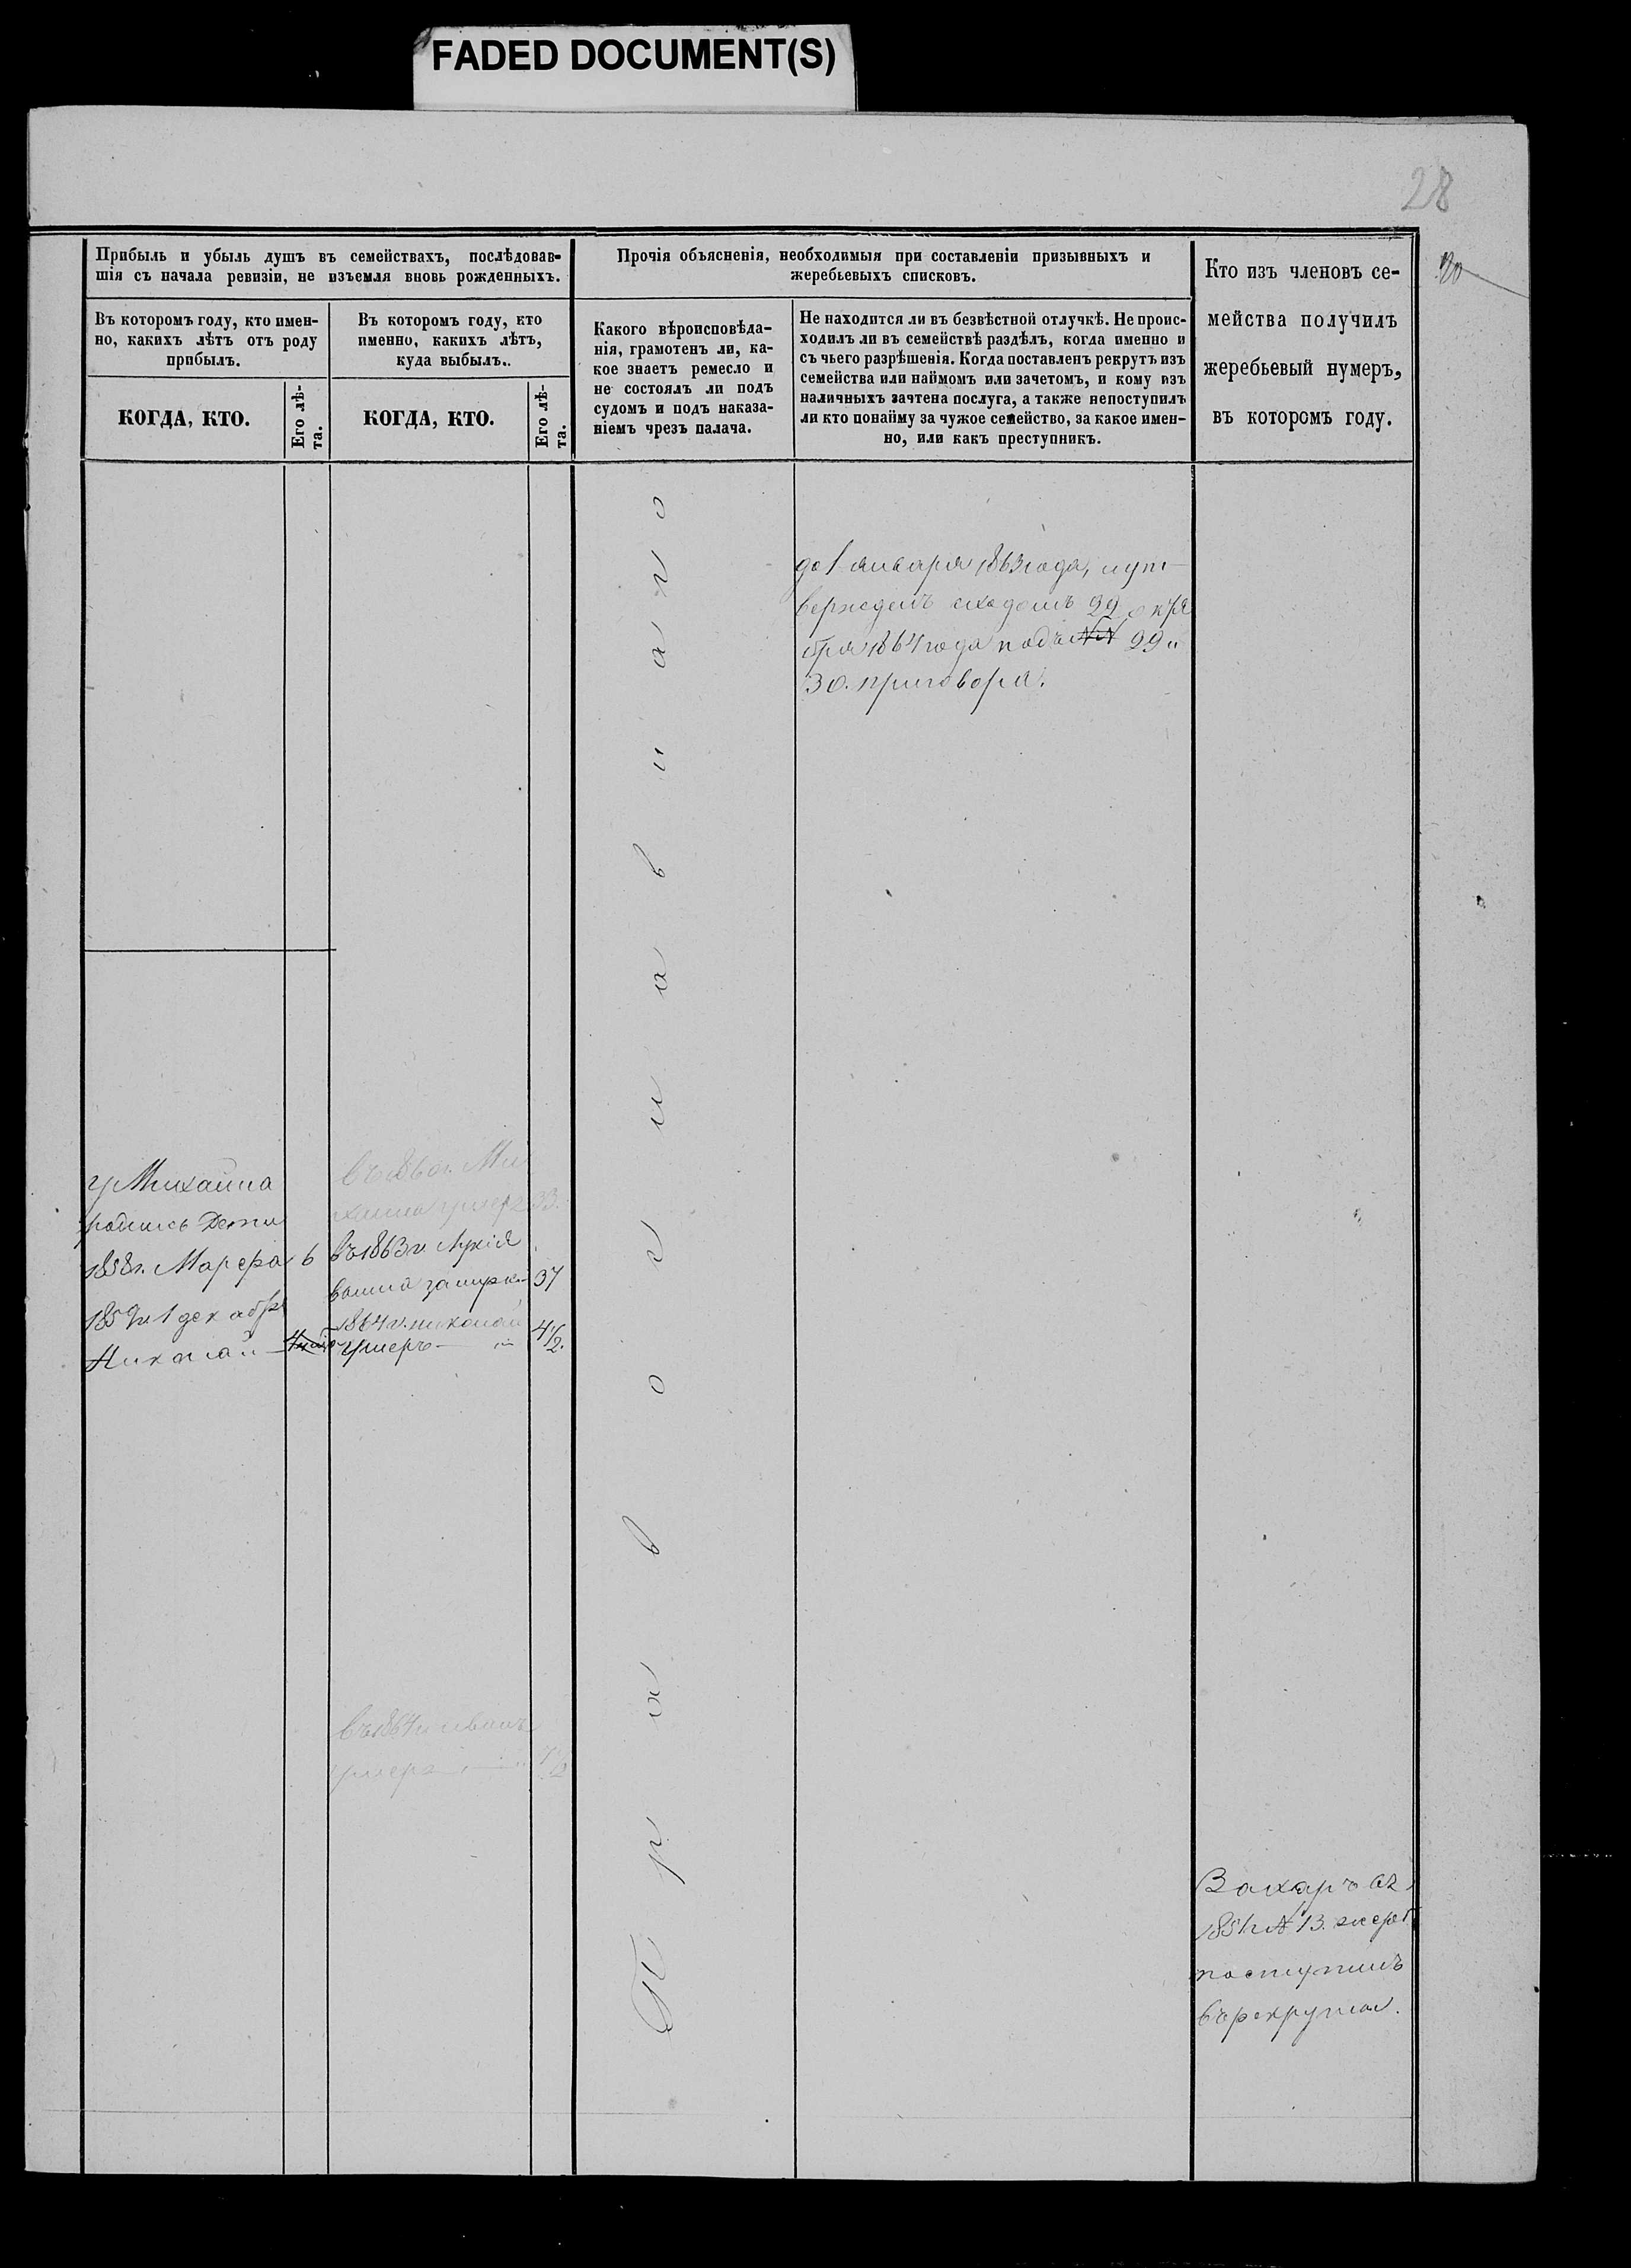 FADED DOCUMENT(S)
28
Прибыль и убыль душъ въ семействахъ, послѣдовав-
шія съ начала ревизіи, не изъемля вновь рожденныхъ.
Въ которомъ году, кто имен-
но, какихъ лѣтъ отъ роду
прибылъ.
КОГДА, КТО.
Его лѣ-
та.
Въ которомъ году, кто
именно, какихъ лѣтъ,
куда выбылъ..
КОГДА, КТО.
Его лѣ-
та.
Прочія объясненія, необходимыя при составленіи призывныхъ и
жеребьевыхъ списковъ.
Какого вѣроисповѣда-
нія, грамотенъ ли, ка-
кое знаетъ ремесло и
не состоялъ ли подъ
судомъ и подъ наказа-
ніемъ чрезъ палача.
Не находится ли въ безвѣстной отлучкѣ. Не проис-
ходилъ ли въ семействѣ раздѣлъ, когда именно и
съ чьего разрѣшенія. Когда поставленъ рекрутъ изъ
семейства или наймомъ или зачетомъ, и кому изъ
наличныхъ зачтена послуга, а также непоступилъ
ли кто понайму за чужое семейство, за какое имен-
но, или какъ преступникъ.
Кто изъ членовъ се-
мейства получилъ
жеребьевый нумеръ,
въ которомъ году.
до 1 января 1863 года, и ут-
вержденъ сходомъ 29 октя
бря 1864 года подъ №№ 29 и
30. приговора.
у Михаила
родились Дети
1858г. Марфа 6
1859г. 1 декабря
Николай
въ 1860г. Ми
хаила умеръ 33.
въ 1863г.
37
1864г. николай
умеръ 4½.
въ 1864г. иванъ
умеръ
Православнаго
Захаръ въ
1851г № 13. жереб
поступилъ
въ рекруты.